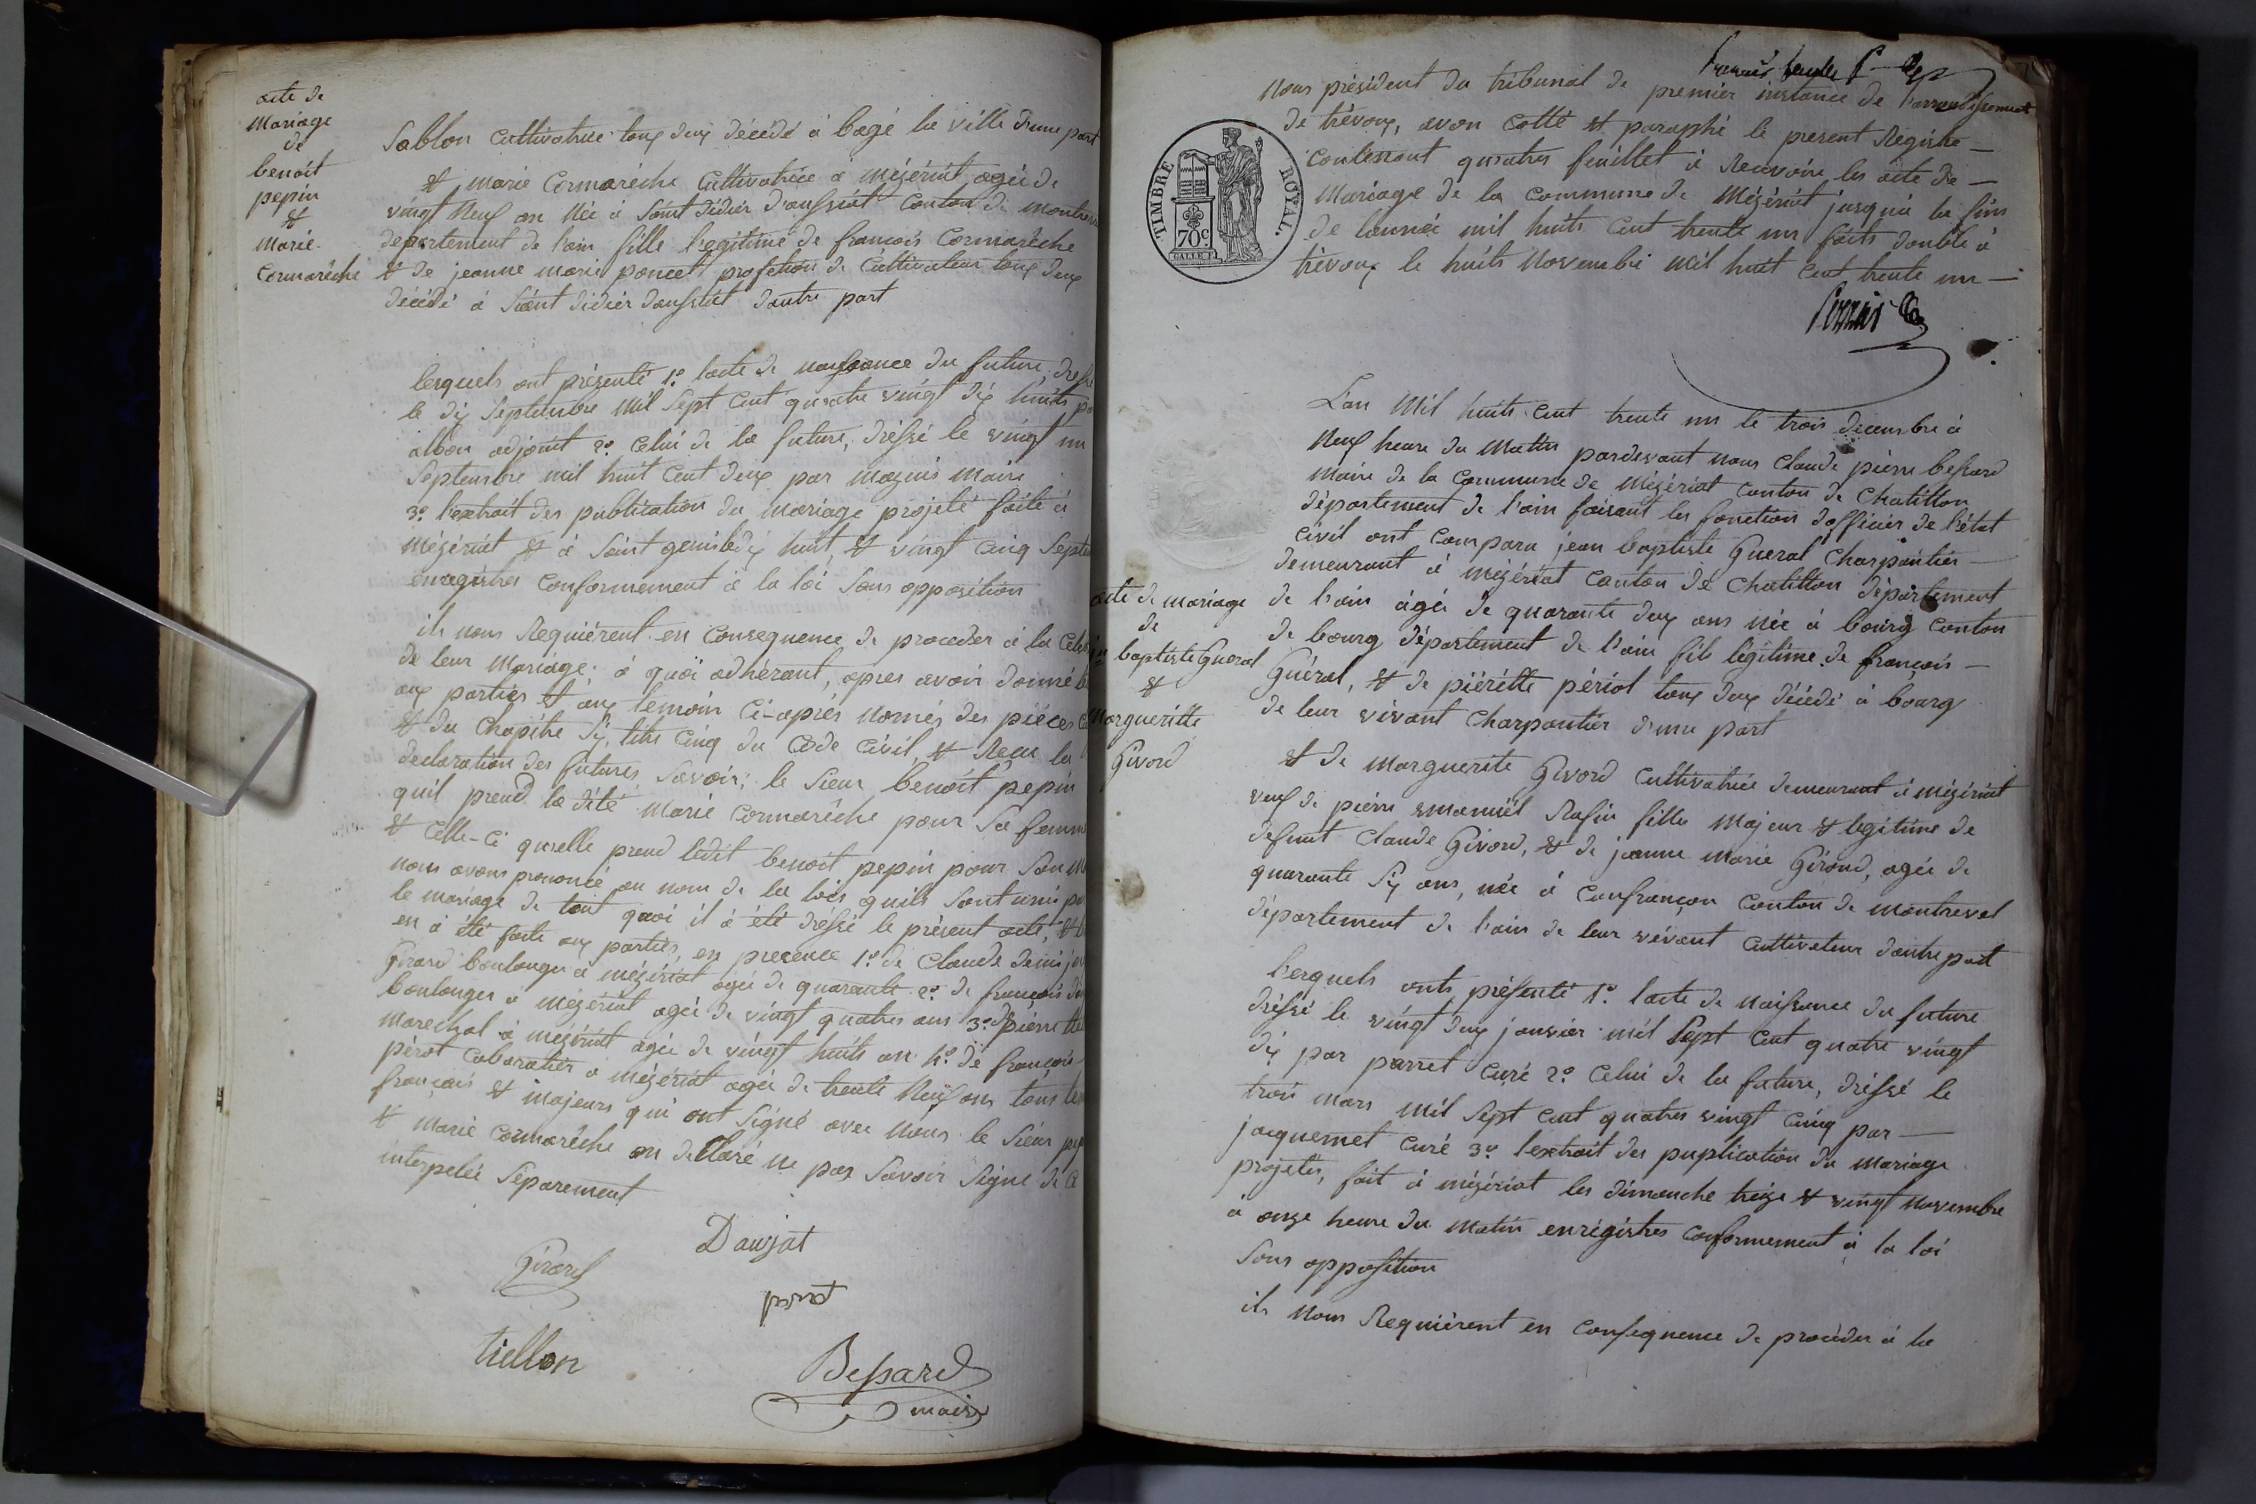 acte de
Mariage
de
benoit
pepin
et
Marie
Cormarêche
Sablon Cultivatrice tous deux décédé à bagé la ville d'une part
et Marie Cormarêche Cultivatrice à Mézériat agée de
vingt Neuf an Née à Saint didier d'aussiat Canton de montrevel
departement de l'ain fille legitime de francois Cormarêche
et de jeanne marie poncet profetion de Cultivateur tous deux
décédé à Saint didier daussiat dautre part
lesquels ont présenté 1º lacte de naissance du future, dressé
le dix Septembre Mil Sept Cent quatre vingt dix huits
albon adjoint 2º Celui de la future, dréssé le vingt un
Septembre mil huit Cent deux par mazuis Maire
3º l'extrait des publication du mariage projeté faite à
Mézériat et à Saint genis le dix huit et vingt cinq Septe
enregistres Conformement à la loi Sans opposition
ils nous Requiérent en Consequence de proceder à la
de leur Mariage. à quoi adhérant, apres avoir donné
aux parties et aux temoin Ci-après Només des piéces
et du Chapitre Six, titre Cinq du Code Civil, et Recu la
declaration des futures, Savoir; le Sieur benoit pepin
quil prend la dite Marie Cormarêche pour Sa femme
et Celle-Ci quelle prend ledit benoit pepin pour Son
nous avons prononcé au nom de la lois quils Sont unis
le mariage de tout quoi il à été dréssé le présent acte,
en à été faite aux parties, en presence 1º de Claude
Girard boulanger à mézériat agée de quarante 2º de francois
boulanger à Mézériat agée de vingt quatres ans 3º de pierre
marechal à mézériat agée de vingt huits an 4º de francois
pérot Cabaratier à Mézériat agée de trente Neuf ans tous
francais et majeurs qui ont Signé avec Nous le Sieur
et Marie Cormarêche on déClaré ne pas Savoir Signé de
interpelée Séparement
Daujat
Girard
perrot
tiellon
Bessard
maire
Nous président du tribunal de premier instance de l'arrondissement
de trévoux, avon Cotté et paraphé le present Registre
Contenant quatres feuillet à Recevoire les acte de
Mariage de la Commune de Mézériat jusqu'à la fin
de lannée mil huits Cent trente un faits double à
trévoux le huits Novembre Mil huit Cent trente un
TIMBRE ROYAL.
70c
L'an Mil huits Cent trente un le trois decembre à
Neuf heure du Matin pardevant nous Claude pierre bessard
maire de la Commune de Mézériat Canton de Chatillon
département de l'ain faisant les fonction d'officier de l'état
Civil ont Comparu jean baptiste Gueral Charpantier
demeurant à Mézériat canton de Chatillon département
de l'ain âgée de quarante deux ans née à bourg Canton
de bourg département de l'ain fils légitime de françois
Guéral, et de piérètte périol tous deux décédé à bourg
de leur vivant Charpantier d'une part
acte de mariage
de
baptiste Gueral
et
Margueritte
Givord
et de Marguerite Givord Cultivatrice demeurant à mézériat
veuf de piérre emanuël Rafin fille Majeur et legitime de
defunt Claude Givord, et de jeanne Marie Giroud, agée de
quarante Six ans, née à Confrançon Canton de Montrevel
département de l'ain de leur vévant Cultivateur dautre part
lesquels onts présenté 1º lacte de Naissance du future
dréssé le vingt deux janvier mil Sept Cent quatre vingt
dix par parret Curé 2º Celui de la future, dréssé le
trois mars Mil Sept Cent quatres vingt Cinq par
jacquemet Curé 3º lextrait des puplication du Mariage
projetés, fait à mézériat les dimanche treize et vingt Novembre
à onze heure du Matin enrégistres Conformement à la loi
Sans opposition
ils Nous Requiérent en Consequence de procéder à la